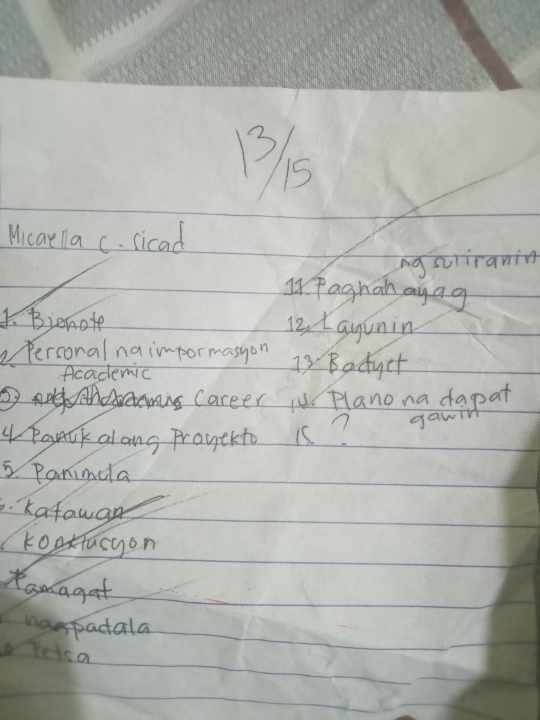 13/15
Micaella C. Cicad
1. Bionote
2. Personal na impormasyon
Academic
3 Career
4. Panukalang Proyekto
5. Panimula
6. Katawan
Konklusyon
Pamagat
nagpadala
Petsa
ng suliranin
11. Paghahayag
12. Layunin
13. Badyet
14. Plano na dapat
gawin
15. ?